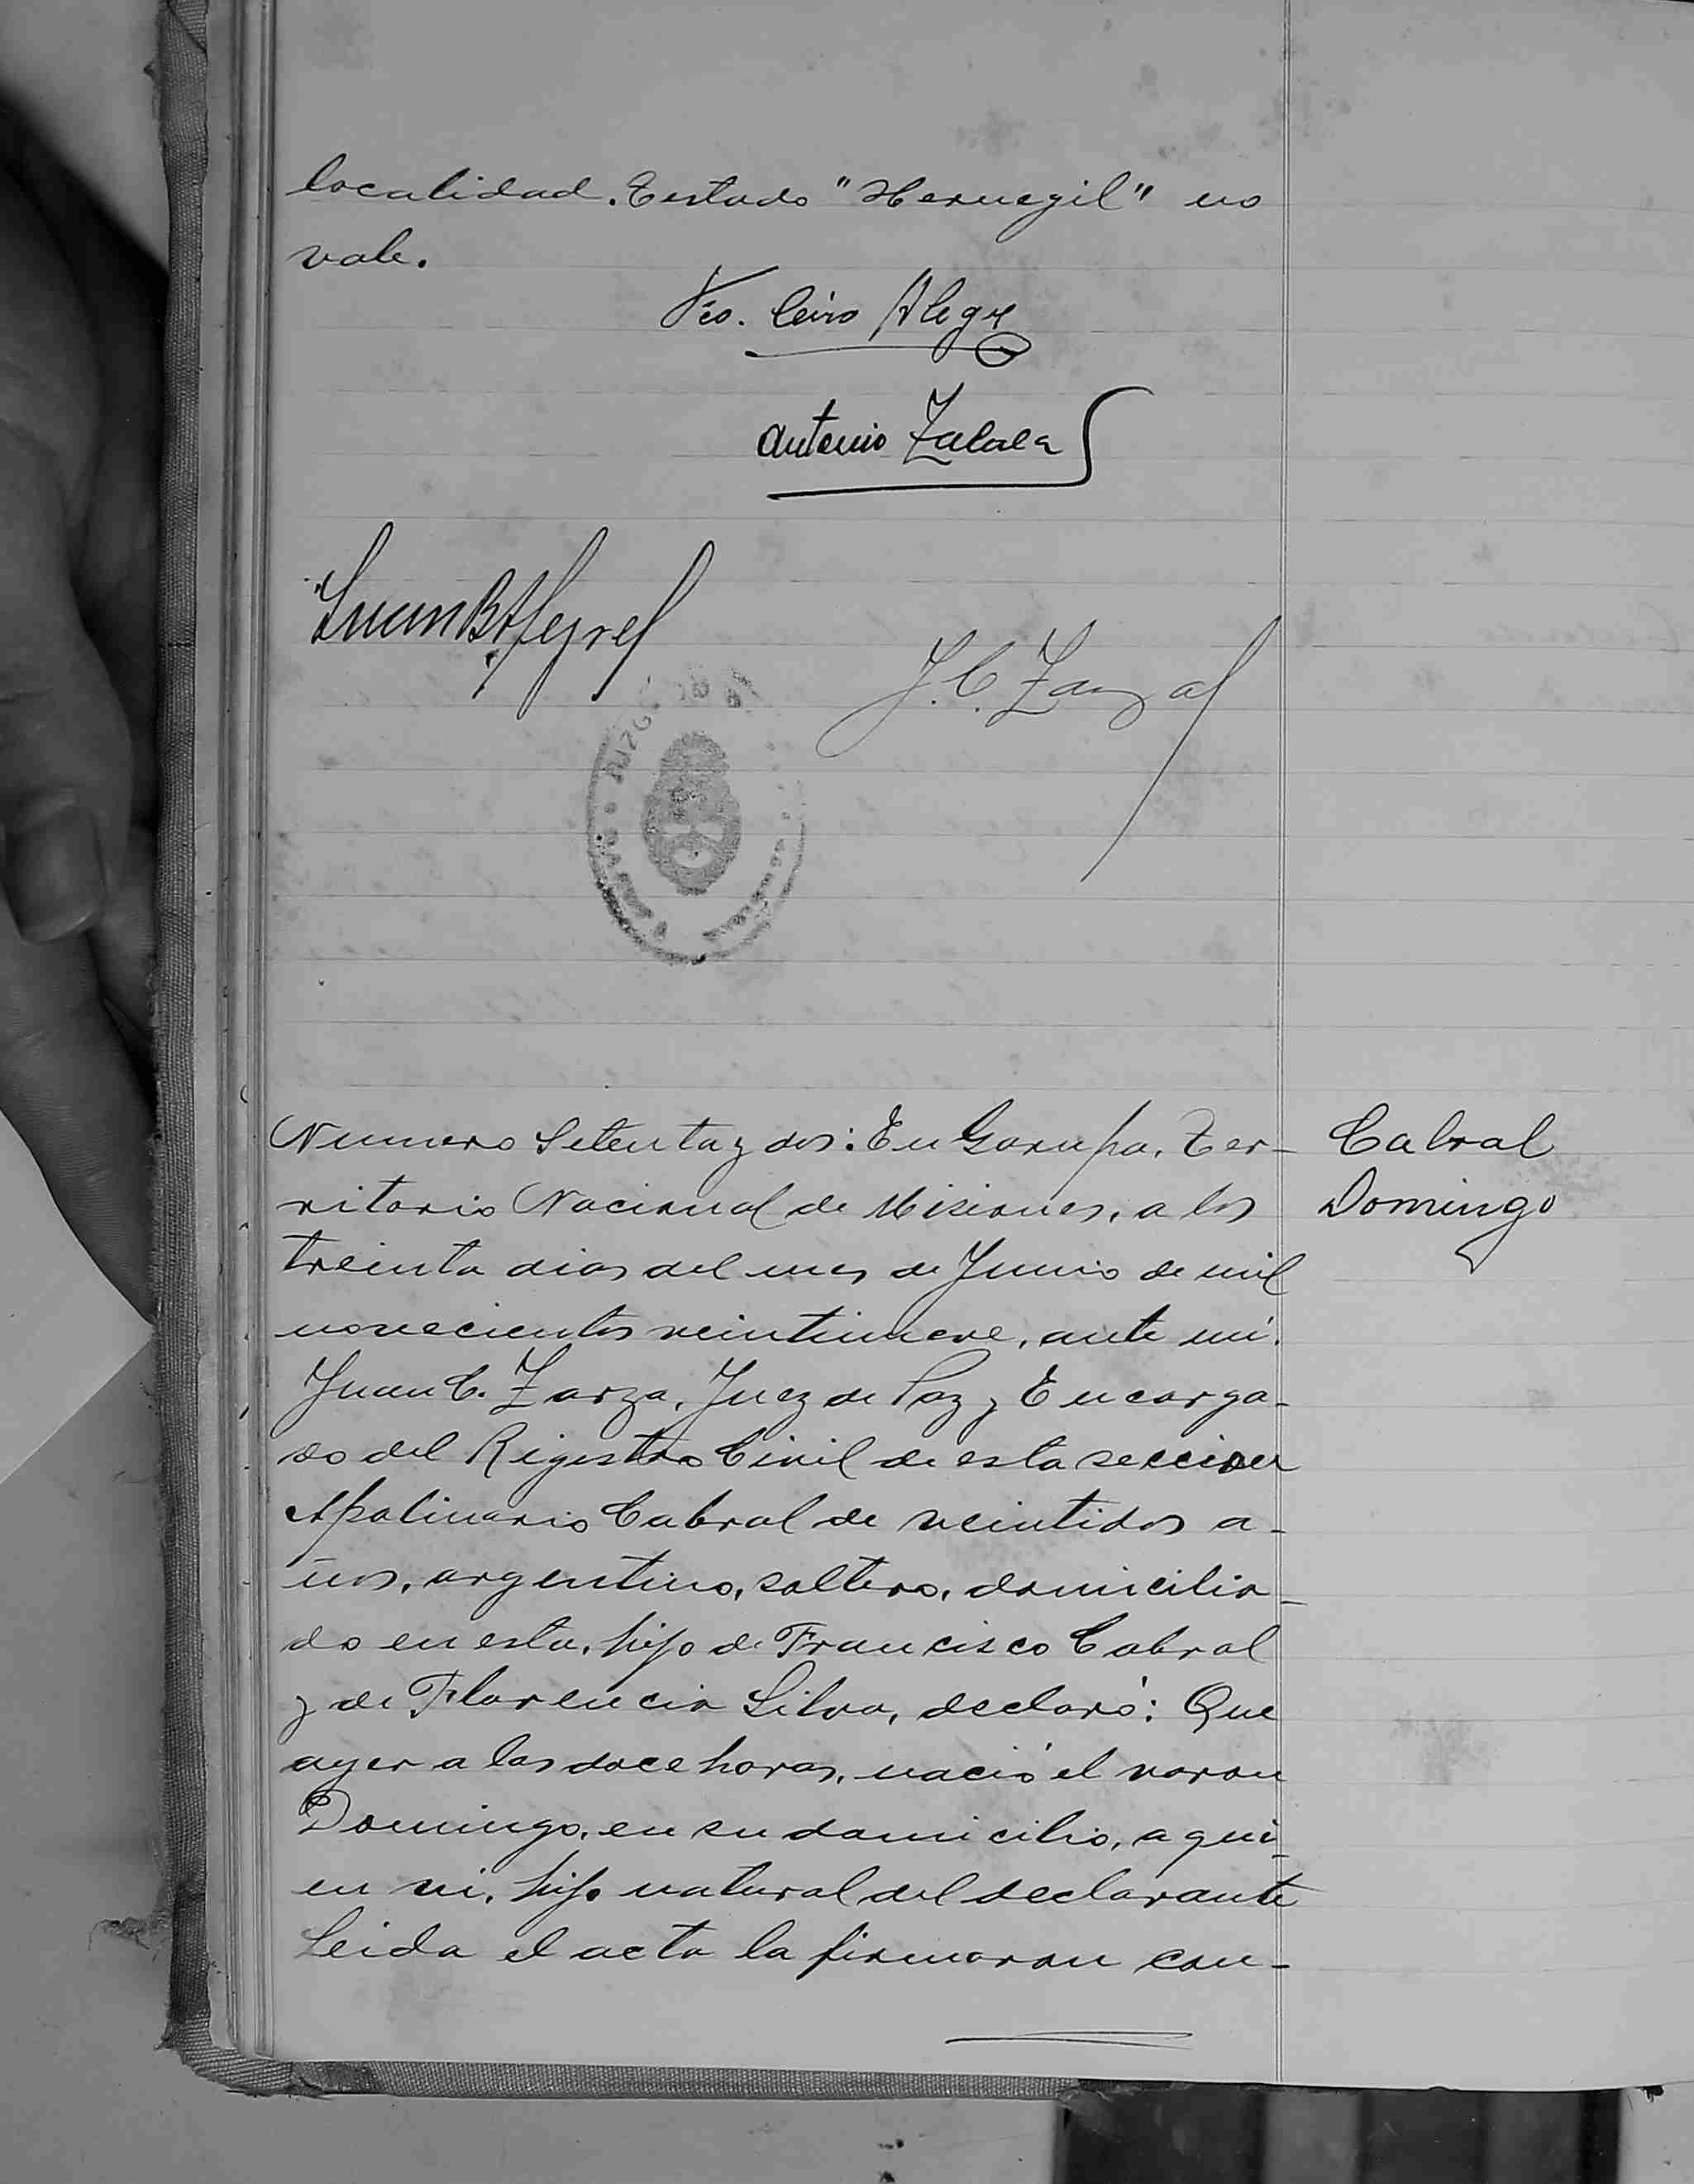 localidad. Testado "Hernegil" no
vale.
Fco. Ciro Alegre
Antonio Zalala
Juan B.
J. C. Zarza
JUZGADO
Numero Setenta y dos: En Garupa, Ter-
ritorio Nacional de Misiones, a los
treinta dias del mes de Junio de mil
novecientos veintinueve, ante mi.
Juan C. Zarza, Juez de Paz y Encarga-
do del Registro Civil de esta seccion
Apolinario Cabral de veintidos a-
ños, argentino, soltero, domicilia-
do en esta, hijo de Francisco Cabral
y de Florencia Silva, declaró: Que
ayer a las doce horas, nació el varon
Domingo, en su domicilio, a qui-
en vi, hijo natural del declarante
Leida el acta la firmaron con-
Cabral
Domingo